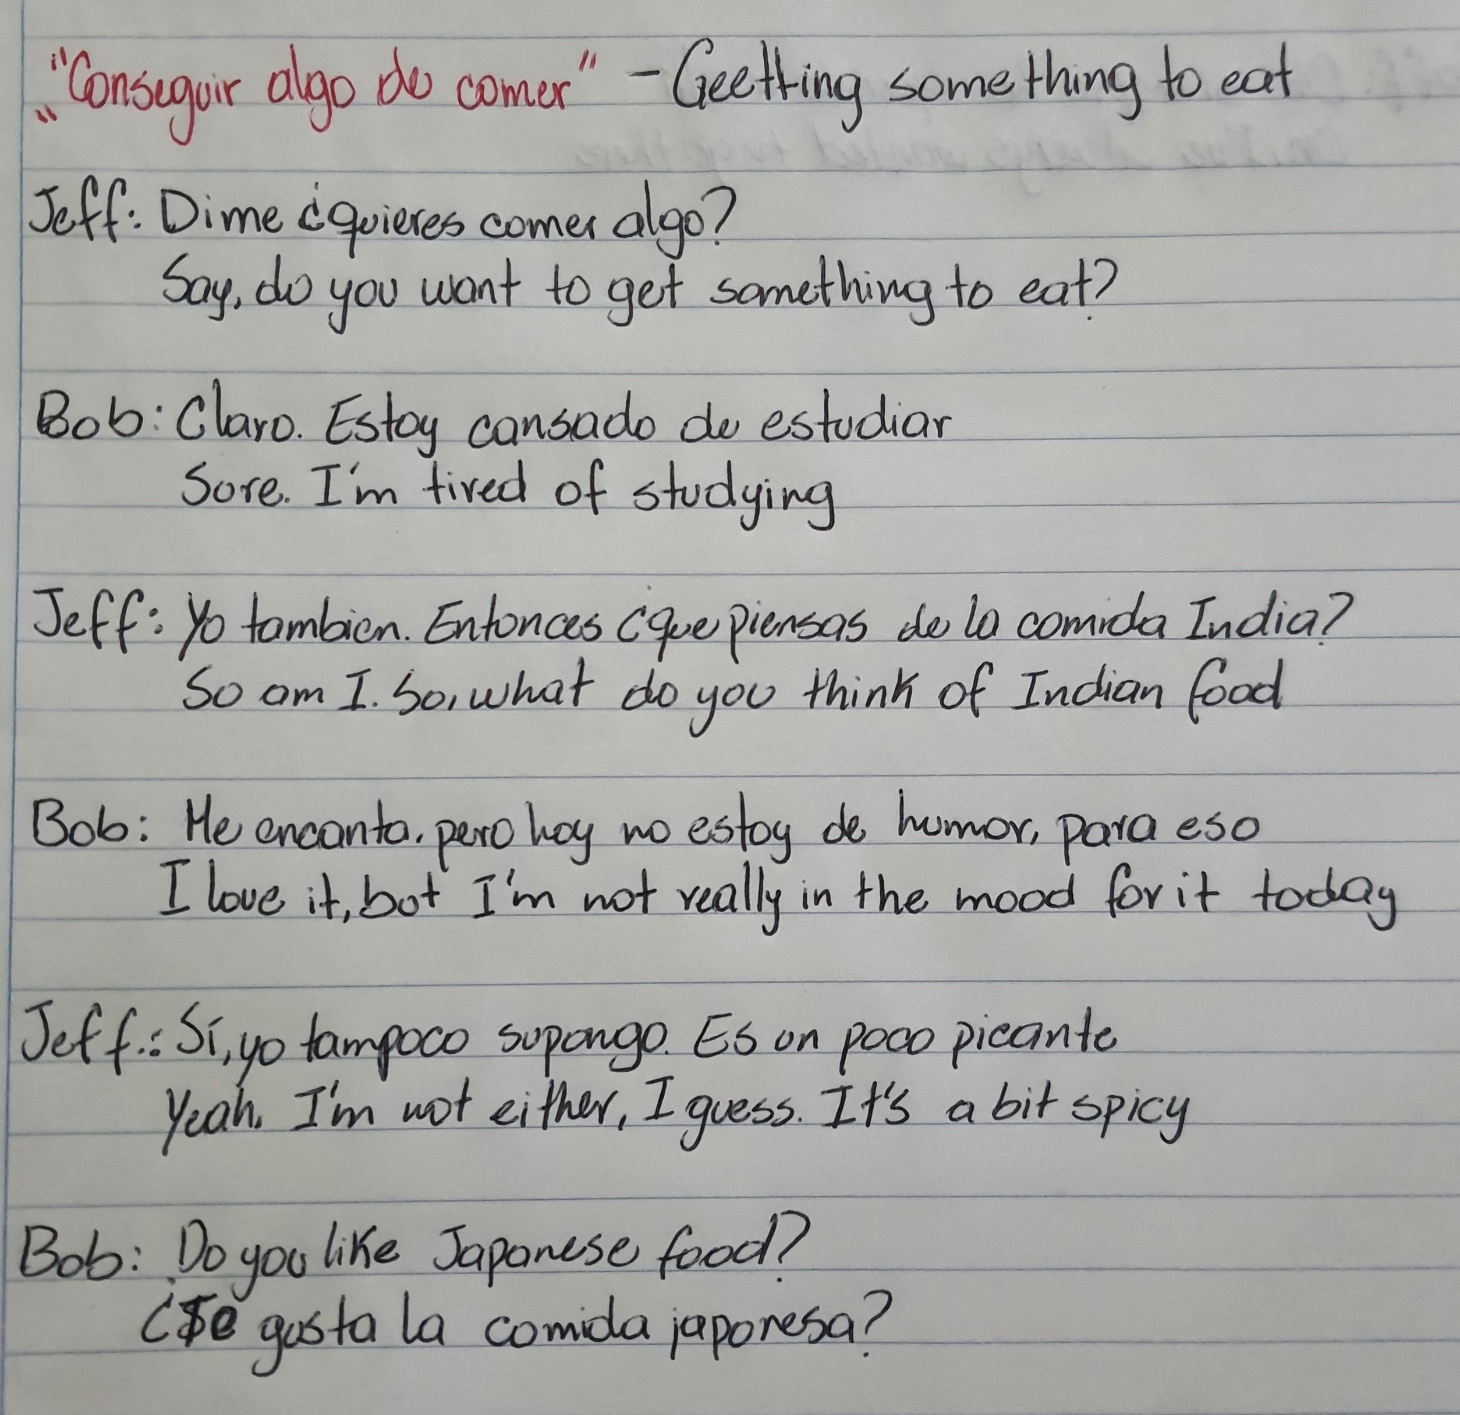 "Conseguir algo de comer" - Geetting something to eat
Jeff: Dime ¿quieres comer algo?
Say, do you want to get something to eat?
Bob: Claro. Estoy cansado de estudiar
Sure. I'm tired of studying
Jeff: Yo tambien. Entonces ¿que piensas de la comida India?
So am I. So, what do you think of Indian food
Bob: Me encanta, pero hoy no estoy de humor, para eso
I love it, but I'm not really in the mood for it today
Jeff: Sí, yo tampoco supongo. Es un poco picante
Yeah, I'm not either, I guess. It's a bit spicy
Bob: Do you like Japanese food?
¿Te gusta la comida japonesa?